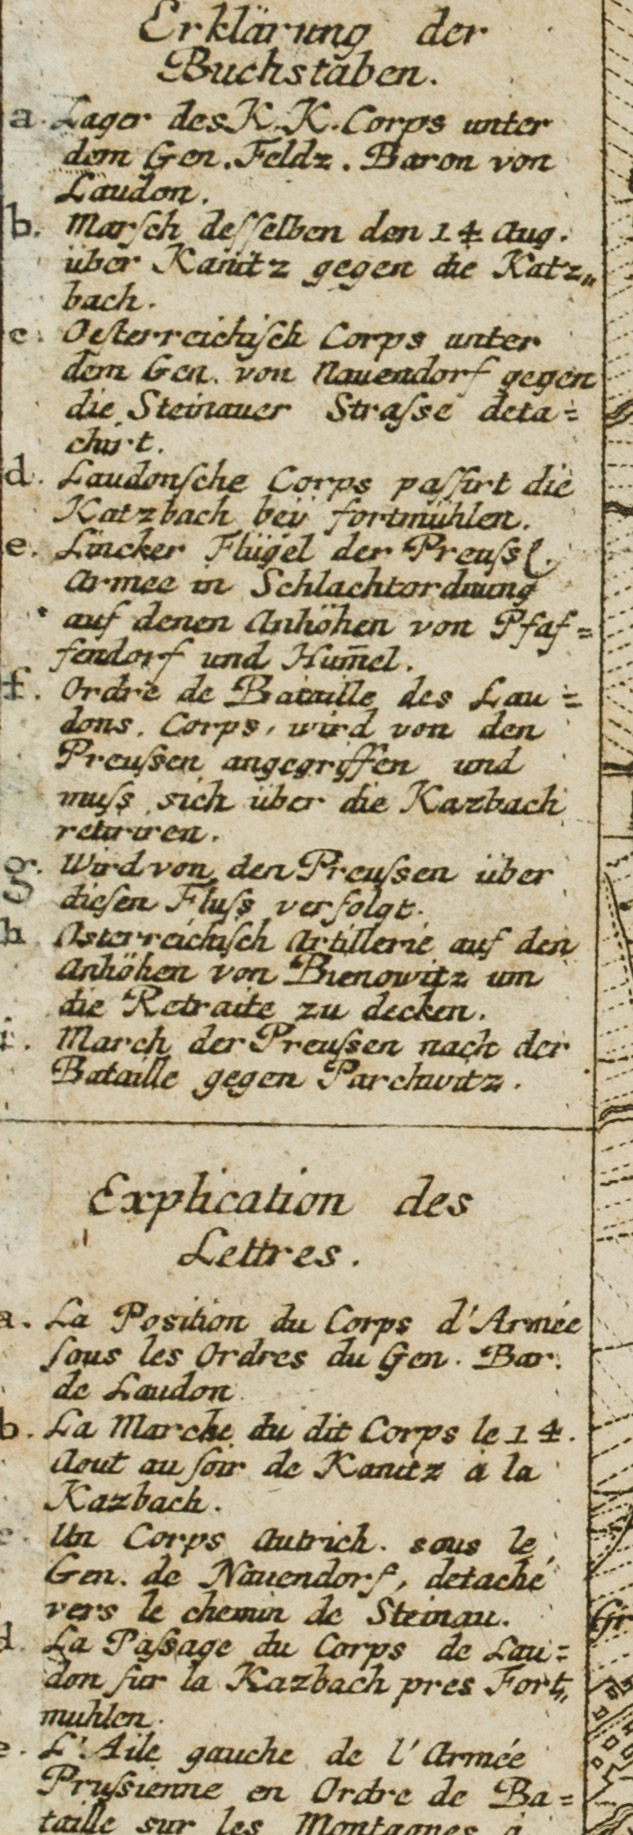 Erklärung der
Buchstaben.
a. Lager des K. K. Corps unter
dem Gen. Feldz. Baron von
Laudon.
b. Marſch deſſelben den 14 Aug.
über Kanitz gegen die Katz„
bach.
c. Oeſterreichiſch Corps unter
dem Gen. von Nauendorf gegen
die Steinauer Straſse deta=
chirt.
d. Laudonſche Corps paſſirt die
Katzbach beÿ fortmühlen.
e. Lincker Flügel der Preuſsſ.
Armee in Schlachtordnung
auf denen Anhöhen von Pfaf=
fendorf und Hum̅el.
f. Ordre de Bataille des Lau=
dons. Corps, wird von den
Preuſsen angegriffen und
muſs sich über die Kazbach
retiriren.
g. Wird von den Preuſsen über
dieſen Fluſs verfolgt.
h Östereichiſch Artillerie auf den
Anhöhen von Bienowitz um
die Retraite zu decken.
i. March der Preuſsen nach der
Bataille gegen Parchwitz.
Explication des
Lettres.
a. La Position du Corps d'Armée
ſous les Ordres du Gen. Bar.
de Laudon
b. La Marche du dit Corps le 14.
Aout au ſoir de Kanitz à la
Kazbach.
c. Un Corps Autrich. sous le
Gen. de Nauendorf, detaché
vers le chemin de Steinau.
d. La Paſsage du Corps de Lau=
don ſur la Kazbach pres Fort„
muhlen.
e. L'Aile gauche de l'Armée
Pruſsienne en Ordre de Ba=
taille sur les Montagnes à
Gr